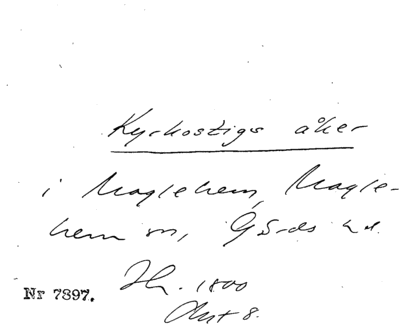 Kyrkostigs åker
i Maglehem, Magle-
hem sn, Gärds hd.
Nr 7897.
1800
Akt 8.